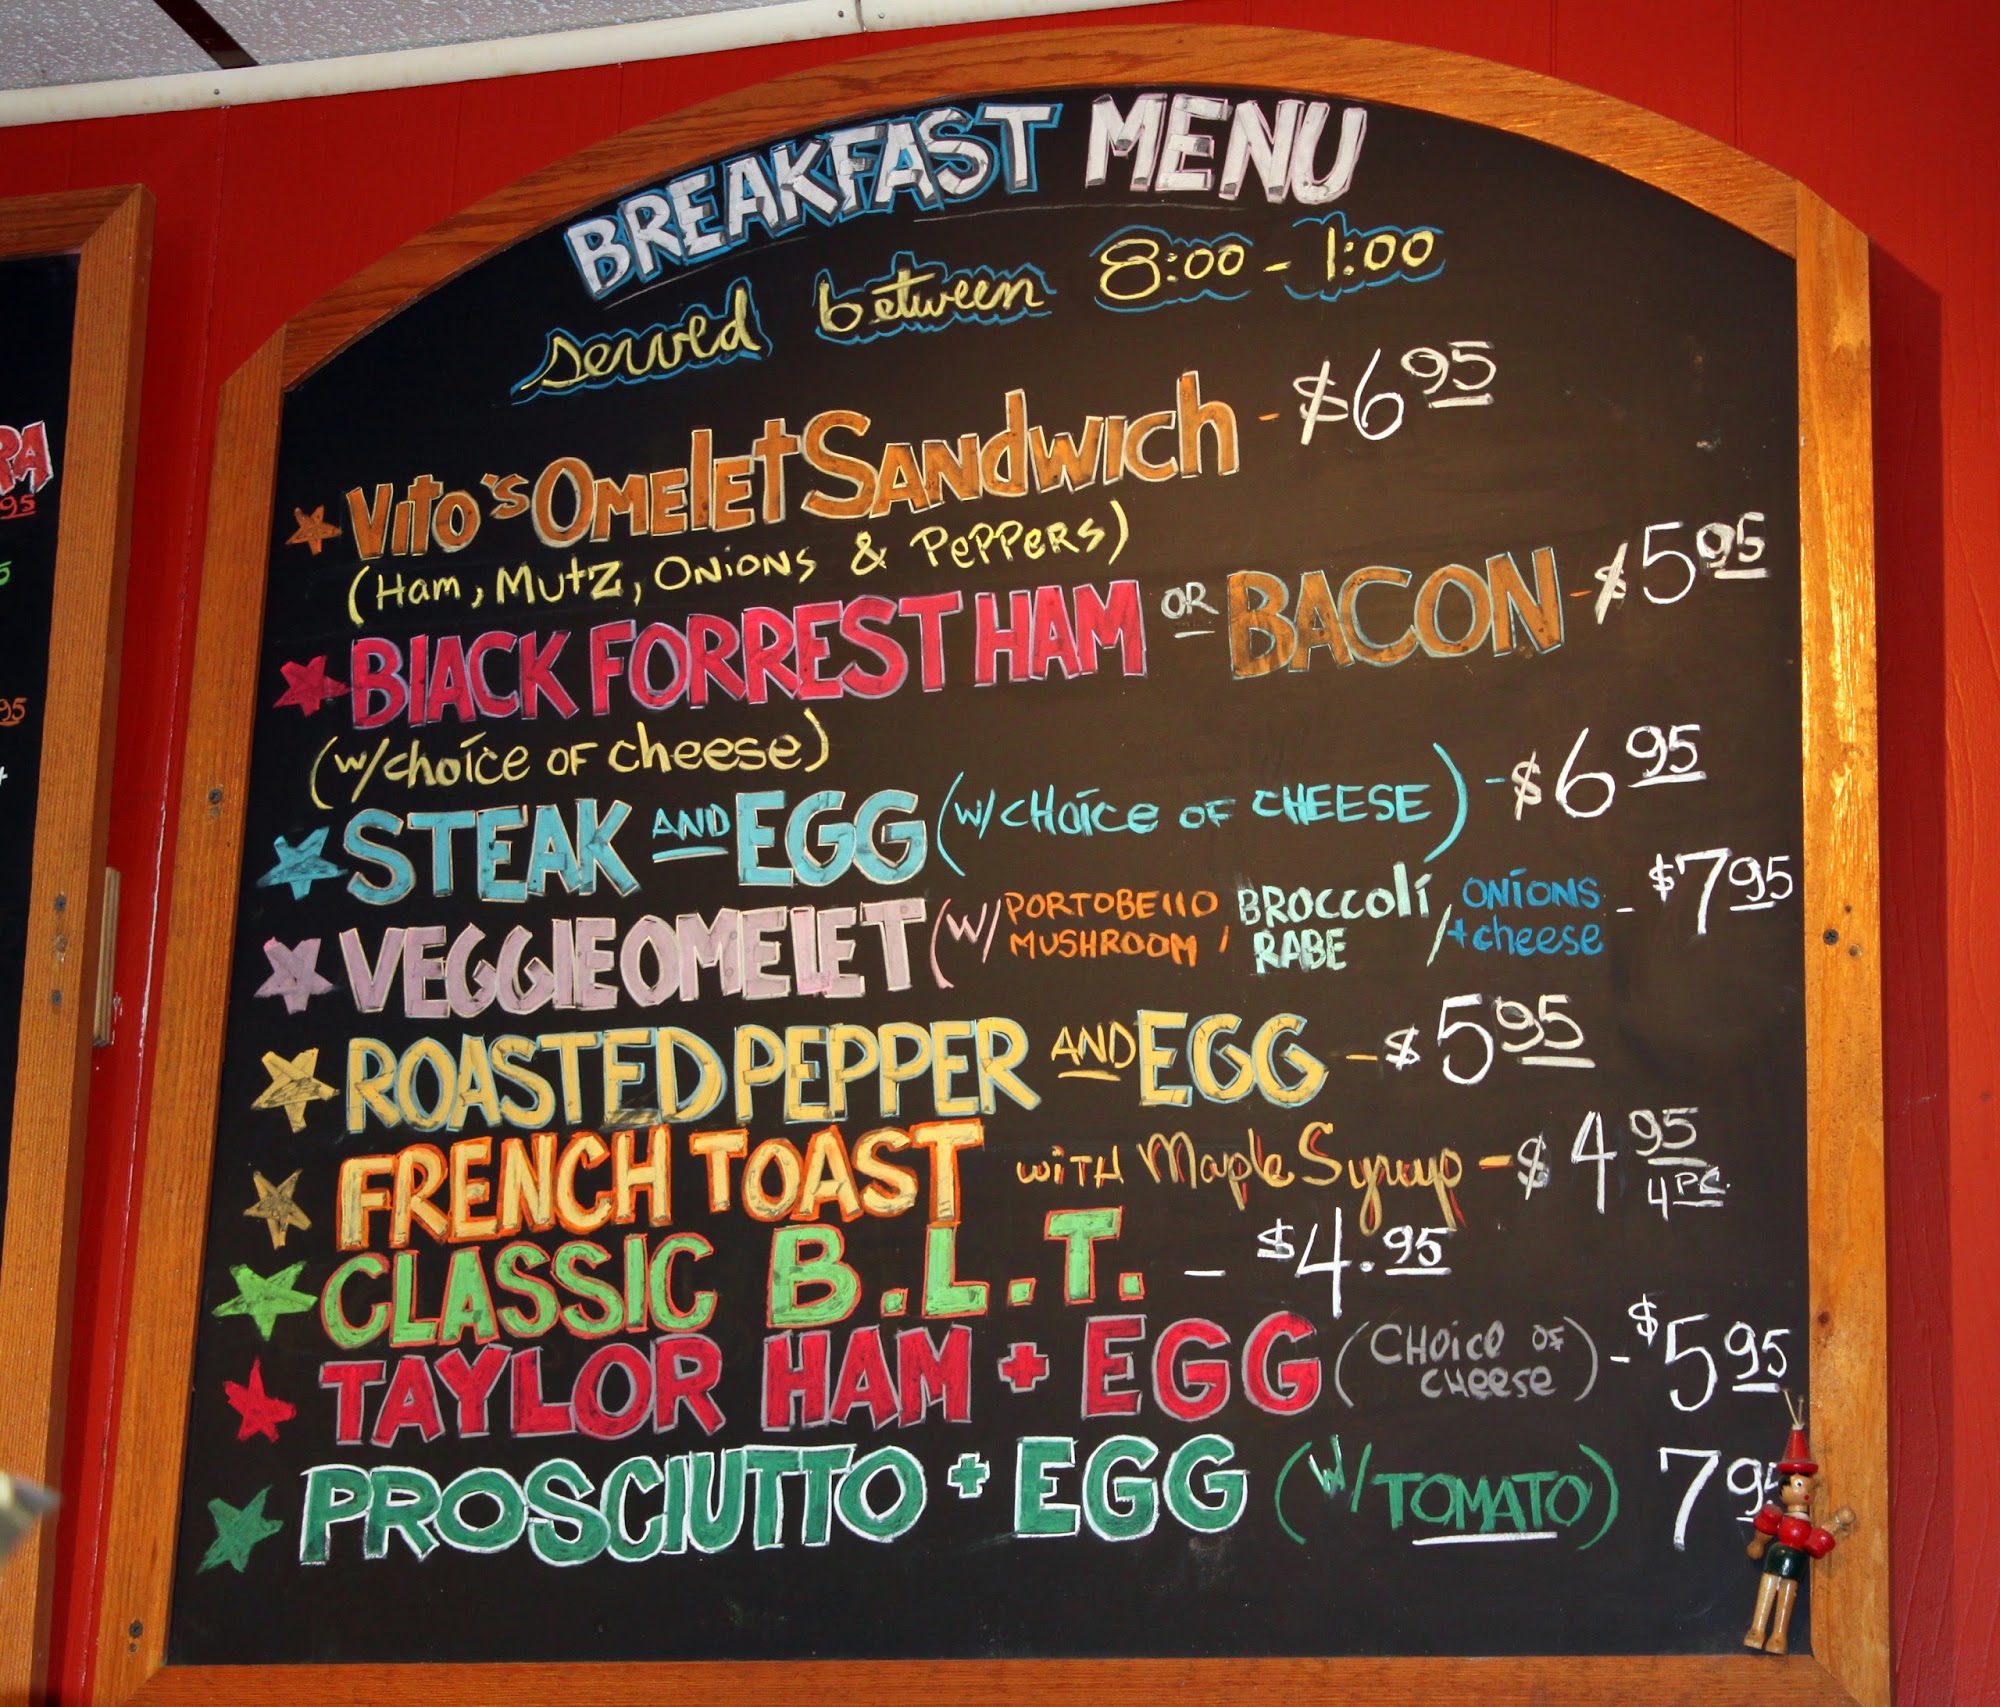 BREAKFAST MENU
served between 8:00 - 1:00
Vito's Omelet Sandwich - $6.95
(Ham, Mutz, Onions & Peppers)
BlACK FORREST HAM OR BACON - $5.95
(w/choice of cheese)
STEAK AND EGG (w/ CHOICE OF CHEESE) - $6.95
VEGGIE OMELET (w/ PORTOBEllO MUSHROOM, BROCCOLI RABE / ONIONS + cheese - $7.95
ROASTED PEPPER AND EGG - $5.95
FRENCH TOAST WITH Maple Syrup - $4.95 4 PC.
CLASSIC B.L.T. - $4.95
TAYLOR HAM + EGG (CHOICE OF CHEESE) - $5.95
PROSCIUTTO + EGG (W/ TOMATO) 7.95
PA
95
5
95